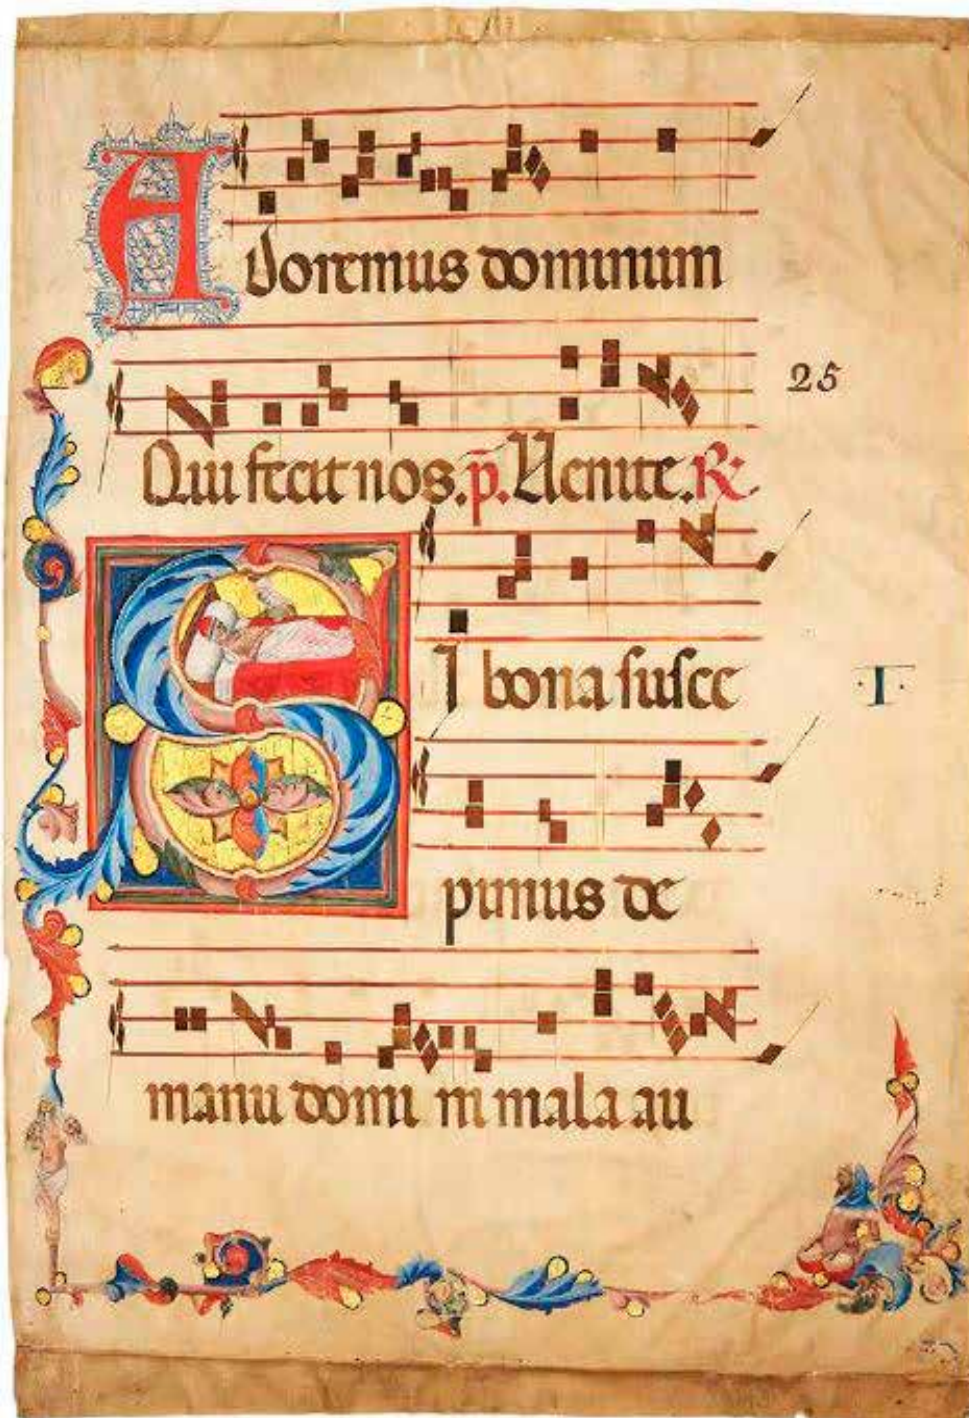 Adoremus dominum
25
Qui fecit nos. p̄. Venite. R:
SI bona susce
·I·
pimus de
manu domi ni mala au